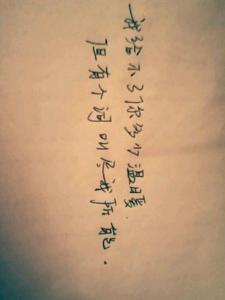 我给不了你多少温暖.
但有个词叫尽我所能.